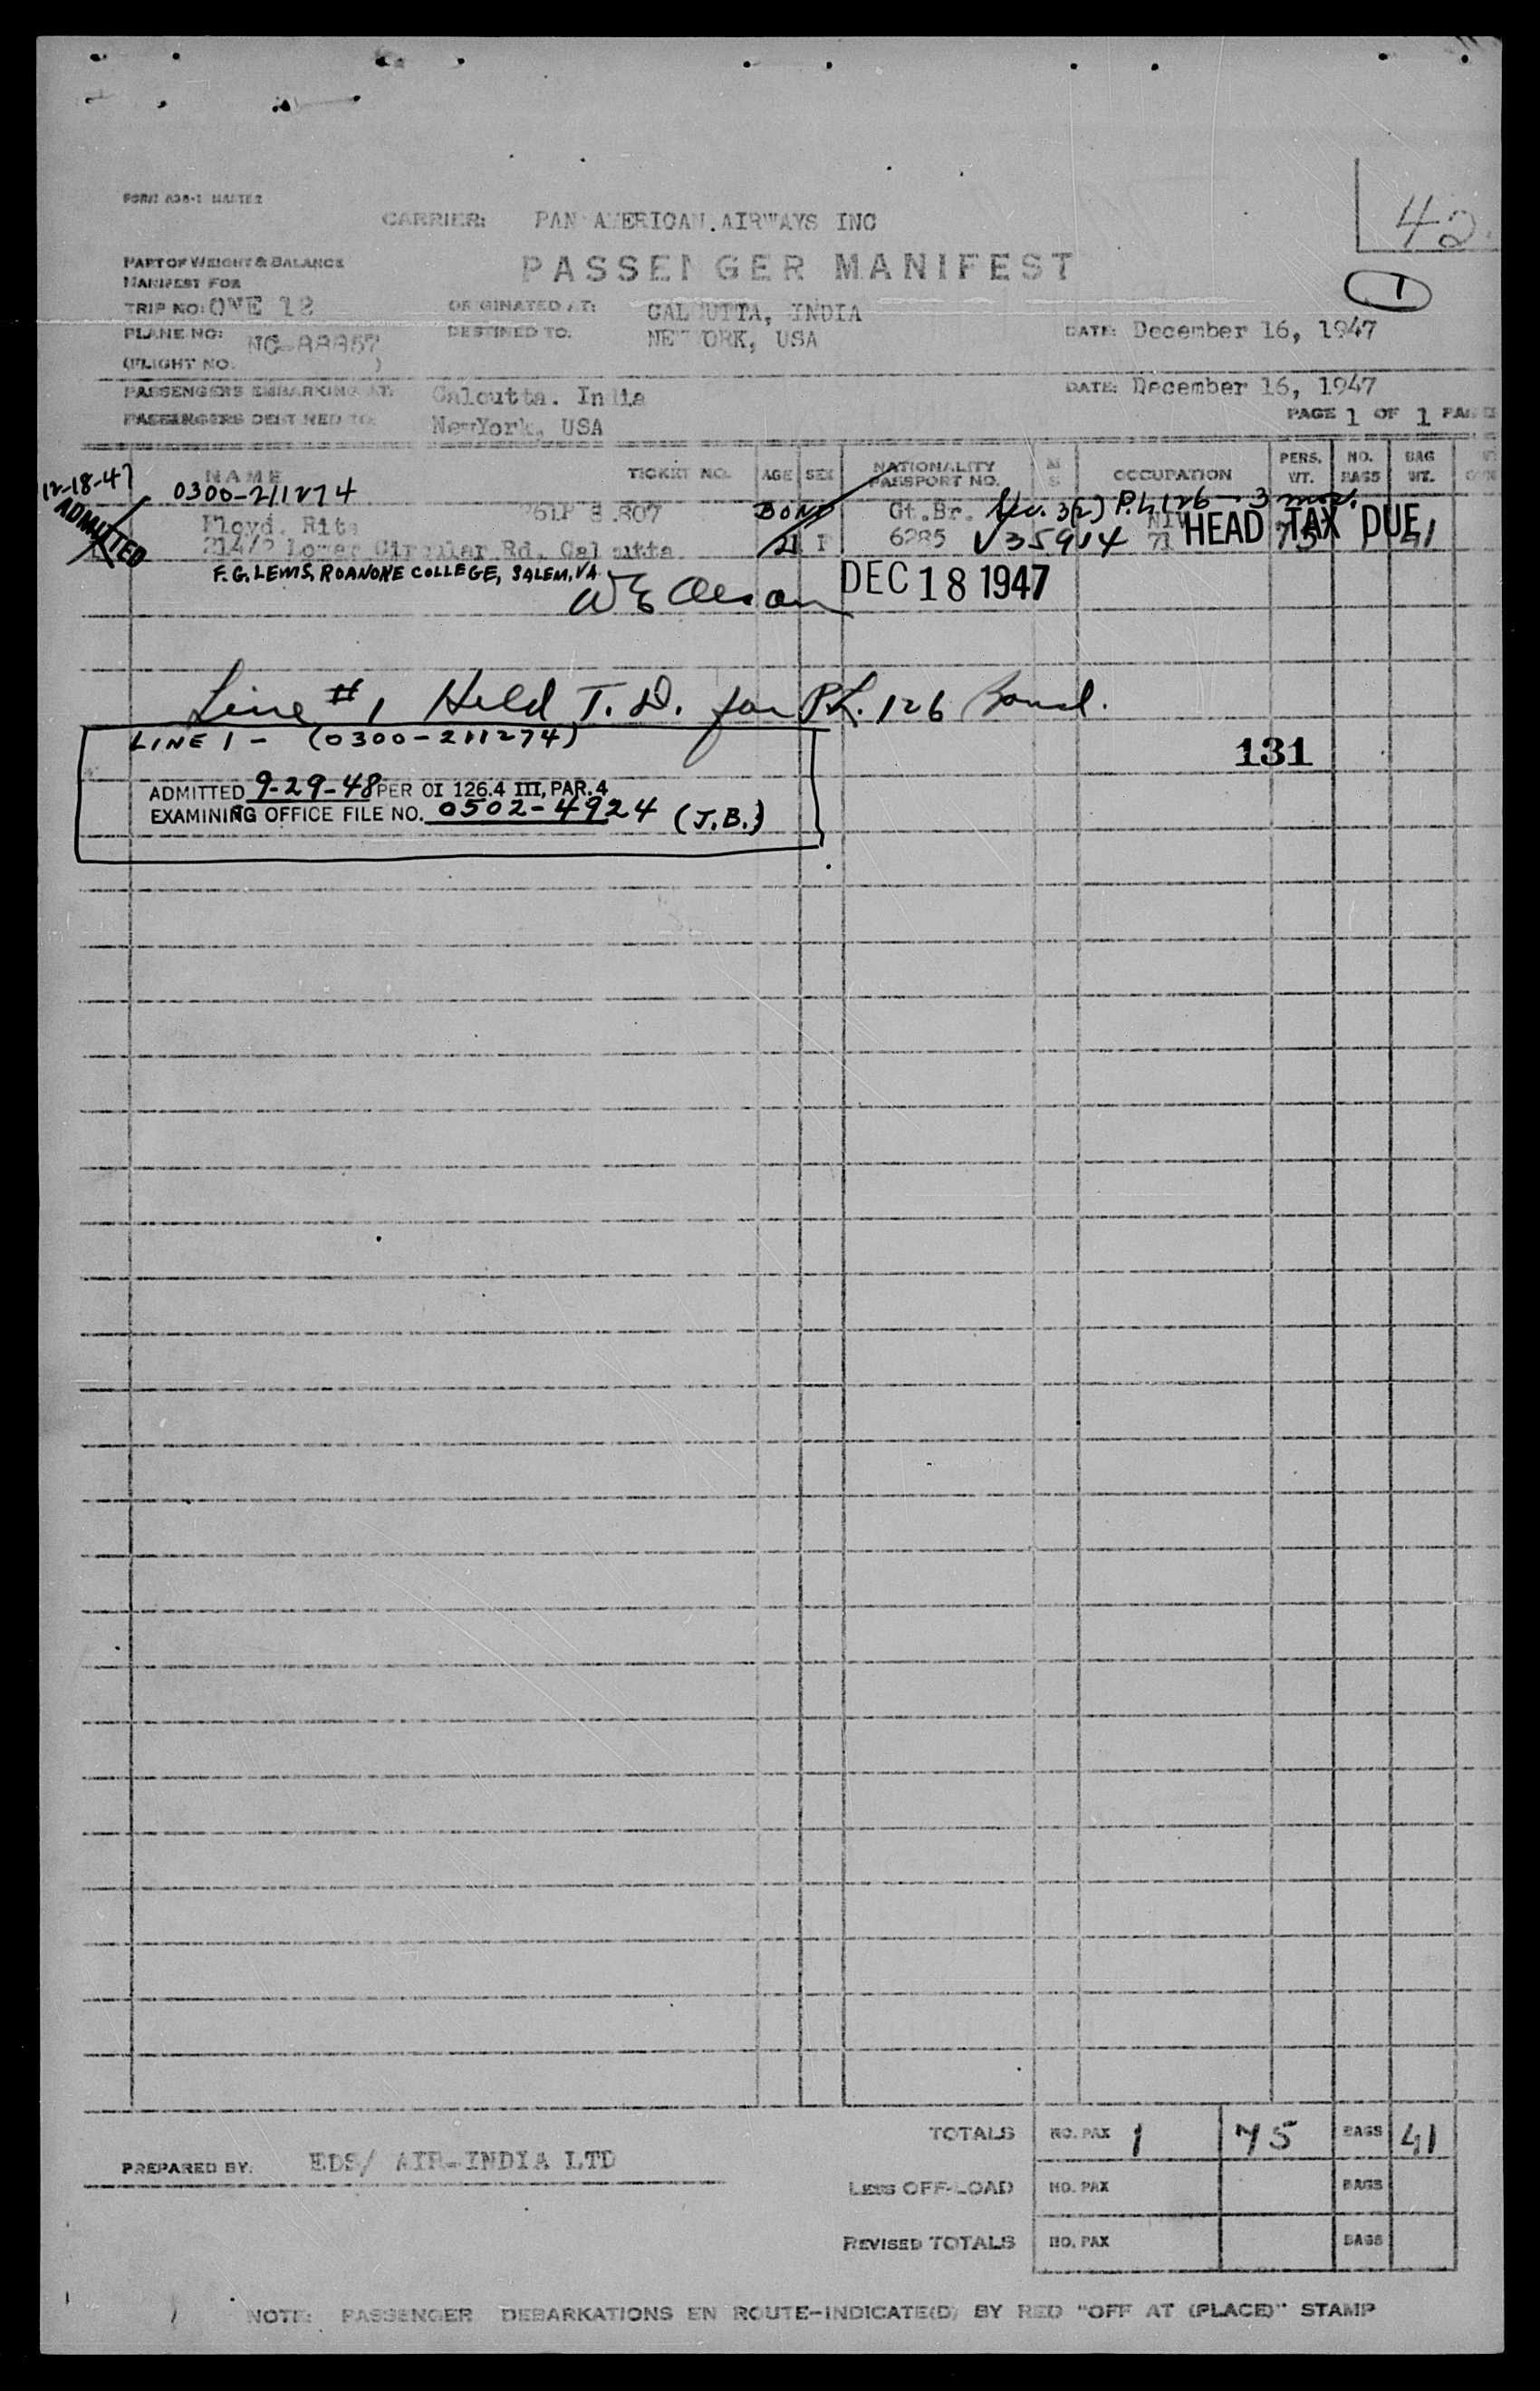 FORM 638-1 MASTER
42
CARRIER: PAN AMERICAN AIRWAYS INC
PART OF WEIGHT & BALANCE
MANIFEST FOR
PASSENGER MANIFEST
1
TRIP NO: ONE 12
ORIGINATED AT: CALCUTTA, INDIA
PLANE NO: NC-88857
DESTINED TO: NEW YORK, USA
DATE: December 16, 1947
(FLIGHT NO. )
PASSENGERS EMBARKING AT: Calcutta. India
DATE: December 16, 1947
PASSENGERS DESTINED TO: NewYork, USA
PAGE 1 OF 1 PAGES
NAME TICKET NO. AGE SEX NATIONALITY PASSPORT NO. M S OCCUPATION PERS. WT. NO. BAGS BAG WT.
12-18-47
ADMITTED
0300-211274
BOND
3(2) P.L. 126 - 3 mos.
Floyd. Rita
Gt.Br.
NIV
HEAD TAX DUE
214/2 Lower Circular Rd. Calcutta 21 F 6285 V35914 71 75 41
F.G. LEWIS, ROANOKE COLLEGE, SALEM, VA.
DEC 18 1947
Line #1 Held T.D. for P.L. 126 Bond.
LINE 1 - (0300-211274)
131
ADMITTED 9-29-48 PER OI 126.4 III, PAR. 4
EXAMINING OFFICE FILE NO. 0502-4924 (J.B.)
TOTALS NO. PAX 1 75 BAGS 41
PREPARED BY: EDS/ AIR-INDIA LTD
LESS OFF-LOAD NO. PAX BAGS
REVISED TOTALS NO. PAX BAGS
NOTE: PASSENGER DEBARKATIONS EN ROUTE-INDICATE(D) BY RED "OFF AT (PLACE)" STAMP